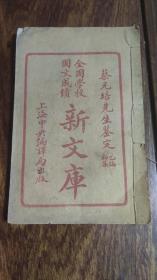 蔡元培先生鉴定
全國学校
國文成绩
新文庫
上海中央編譯局出版